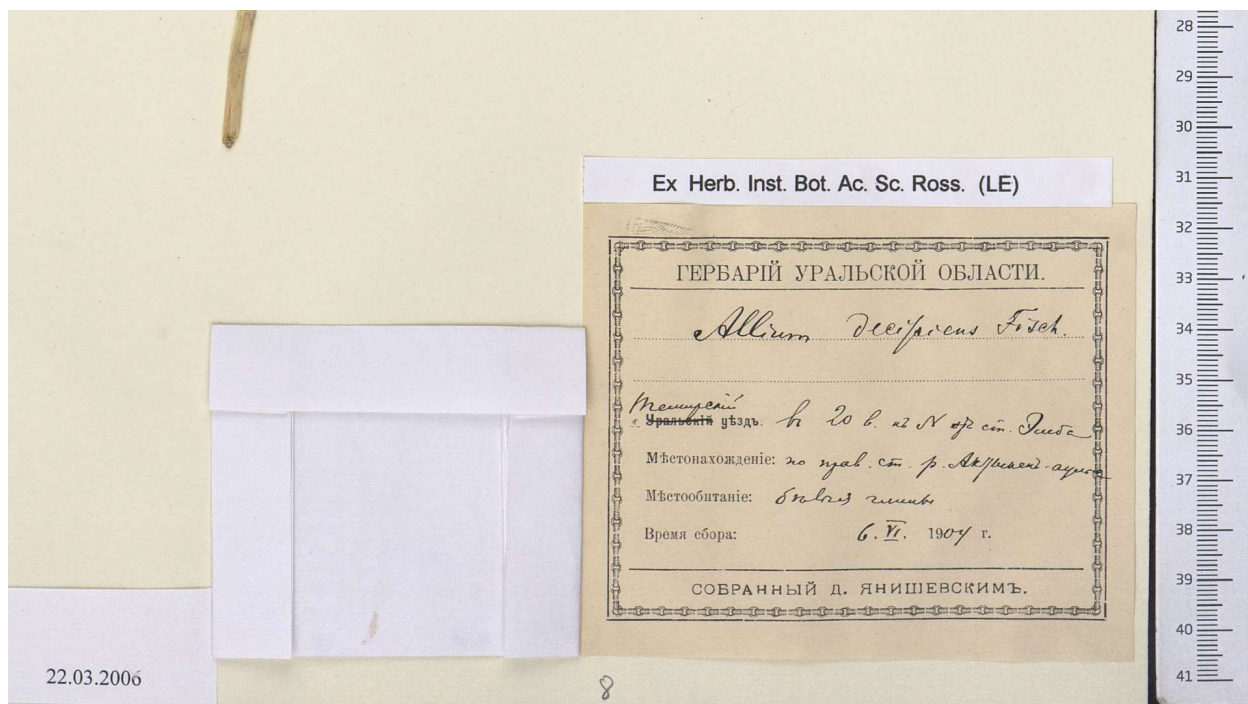 Ex Herb. Inst. Bot. Ac. Sc. Ross. (LE)
ГЕРБАРІЙ УРАЛЬСКОЙ ОБЛАСТИ.
Allium decipiens Fisch.
Темирскій
Уральскій уѣздъ. въ 20 в. къ N отъ ст. Эмба
Мѣстонахожденіе: по прав. ст. р.
Мѣстообитаніе: бѣлыя глины
Время сбора: 6. VI. 1904 г.
СОБРАННЫЙ Д. ЯНИШЕВСКИМЪ.
22.03.2006
8
28
29
30
31
32
33
34
35
36
37
38
39
40
41